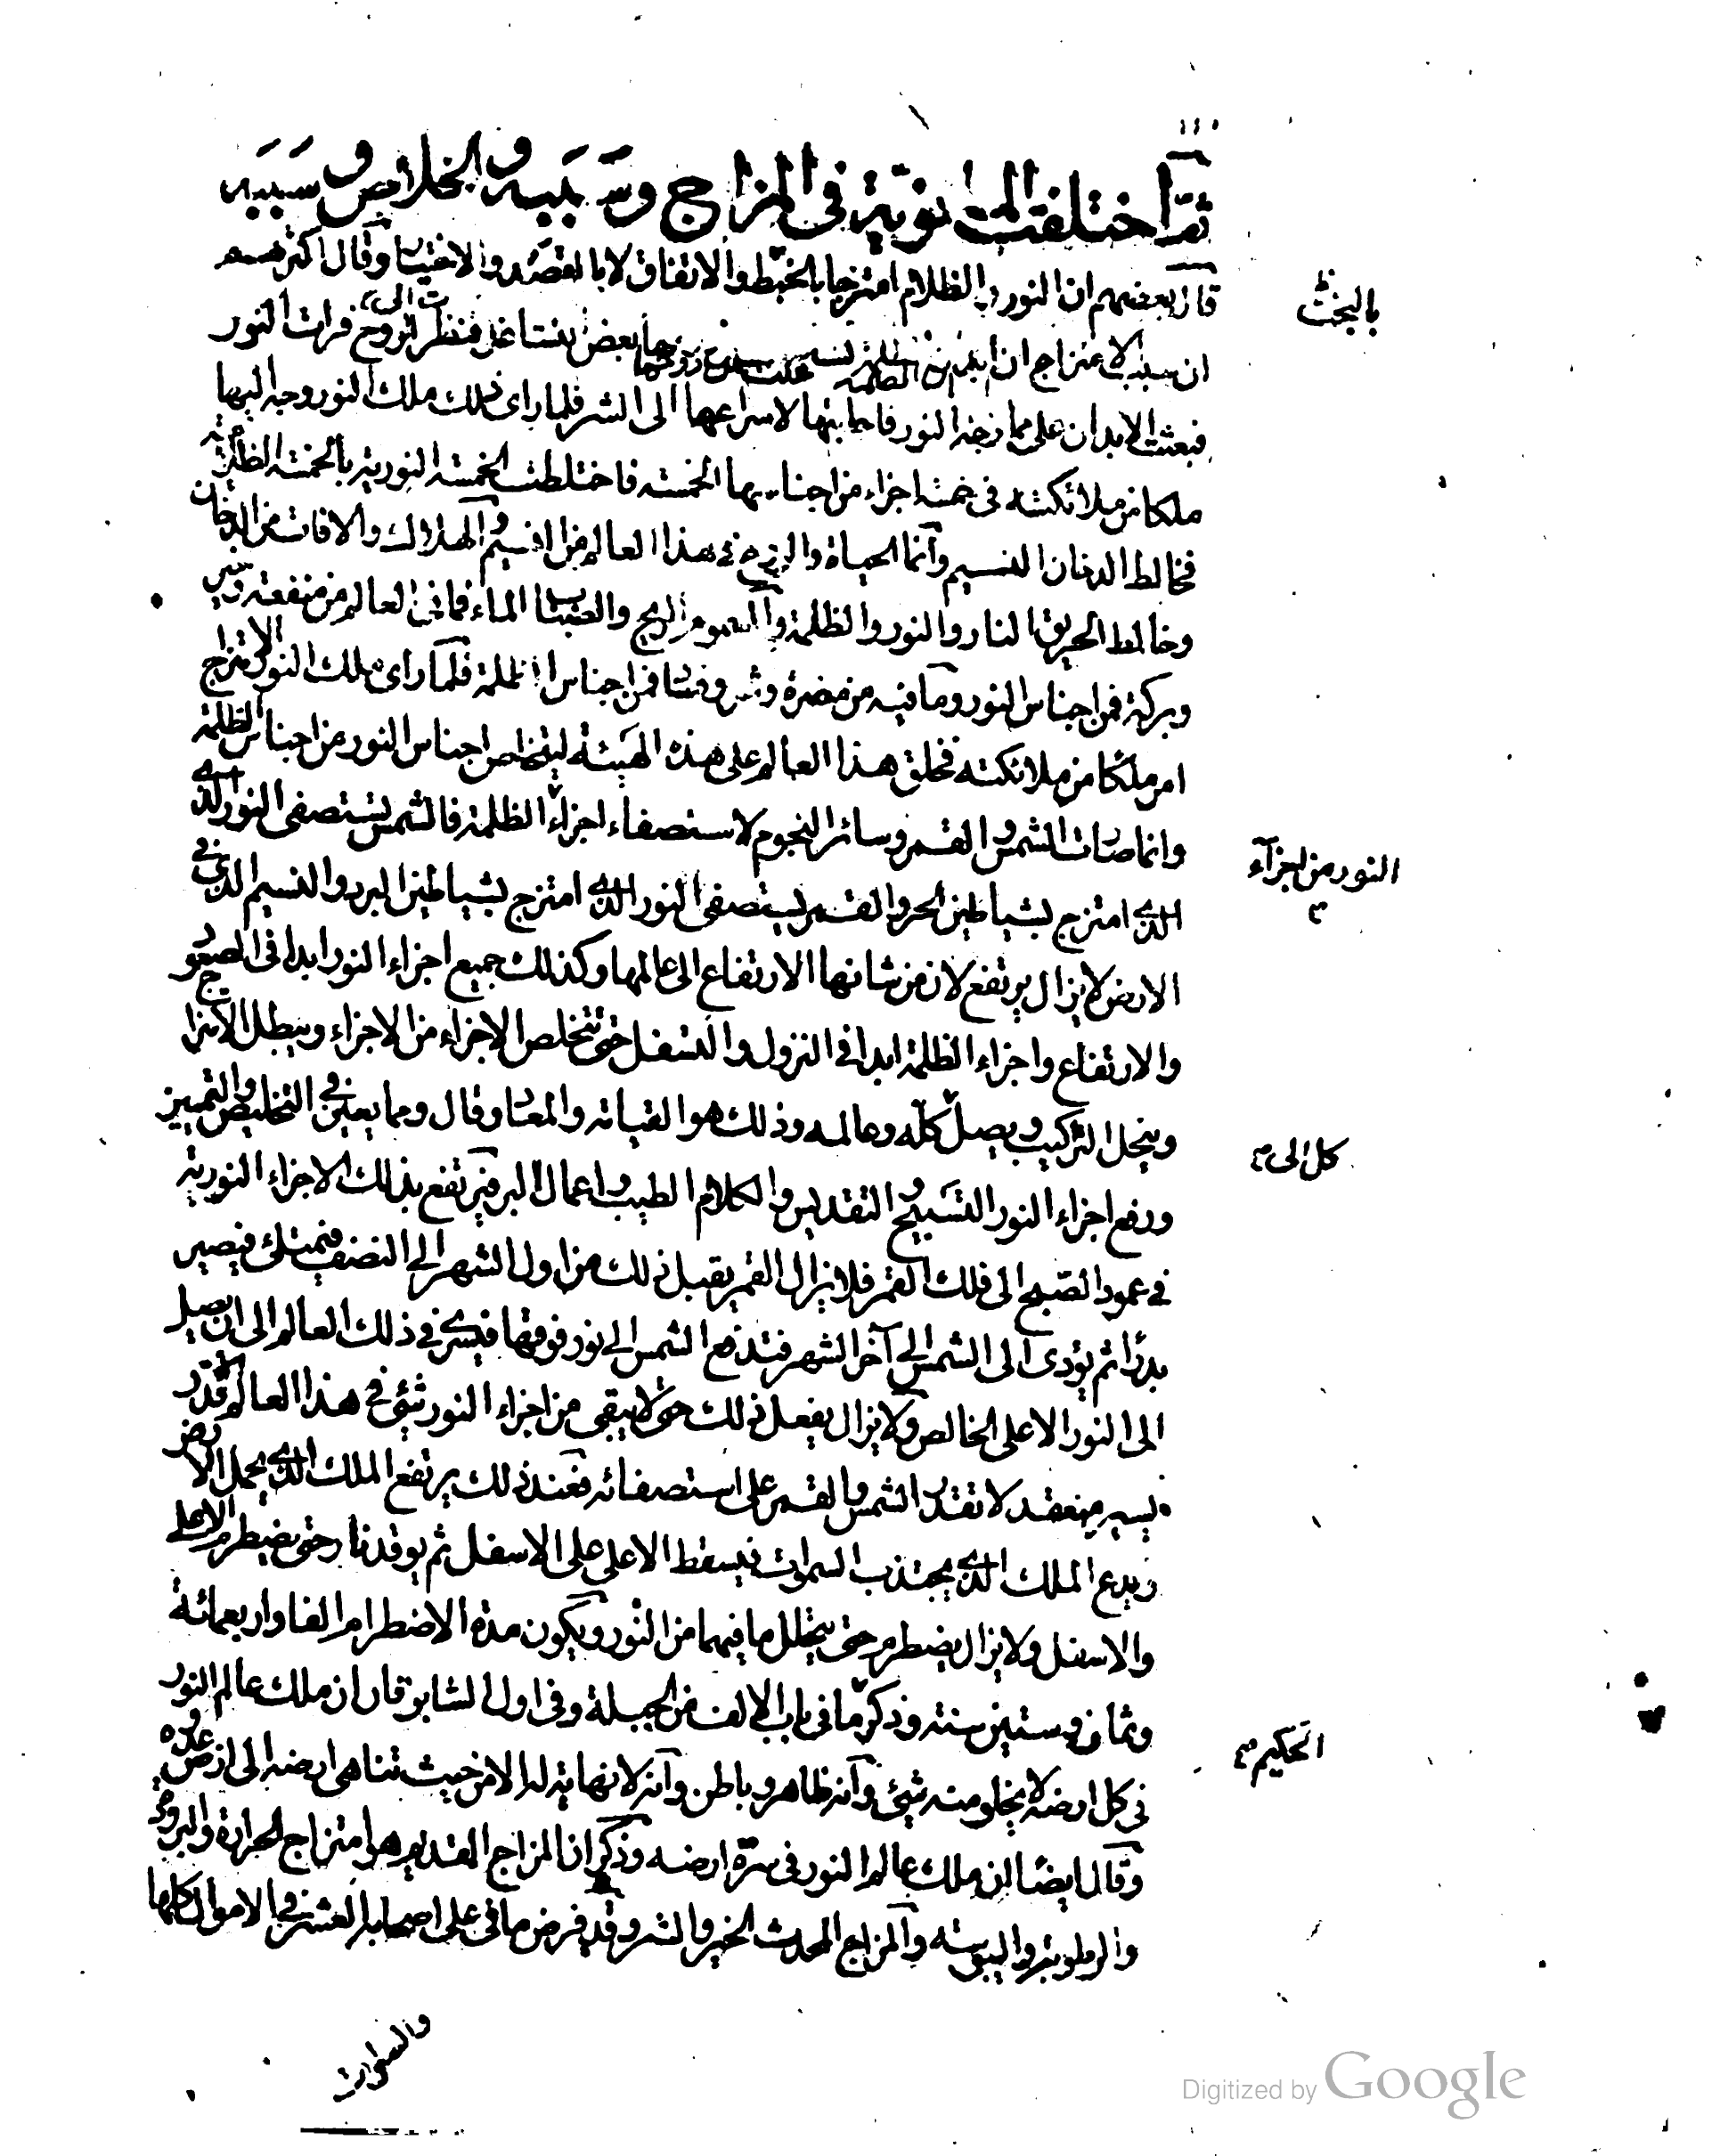 ثم اختلفت المانوية في المزاج وسببه والخلاص وسببه
قال بعضهم ان النور والظلام امتزجا بالخبط والاتفاق لا بالقصد والاختيار وقال اكثرهم
بالبخت
ان سبب الامتزاج ان ابدان الظلمة تشاغلت عن روحها بعض تشاغل فنظرت الى الروح فرات النور
فبعثت الابدان على ممازجة النور فاجابتها لاسراعها الى الشر فلما راى ذلك ملك النور وجه اليها
ملكا من ملائكته في خمسة اجزاء من اجناسها الخمسة فاختلطت الخمسة النورية بالخمسة الظلامية
فخالط الدخان النسيم وانما الحياة والروح في هذا العالم من النسيم والهلاك والافات من الدخان
وخالط الحريق النار والنور والظلمة والسموم الريح والضباب الماء فما في العالم من منفعة وخير
وبركة فمن اجناس النور وما فيه من مضرة وشر وفساد فمن اجناس الظلمة فلما راى ملك النور الامتزاج
امر ملكا من ملائكته فخلق هذا العالم على هذه الهيئة ليتخلص اجناس النور من اجناس الظلمة
وانما صارت الشمس والقمر وسائر النجوم لاستصفاء اجزاء الظلمة فالشمس تستصفى النور الذي
النور من اجزآء
الذي امتزج بشياطين الحر والقمر يستصفى النور الذي امتزج بشياطين البرد والنسيم الذي في
الارض لا يزال يرتفع لان من شانها الارتفاع الى عالمها وكذلك جميع اجزاء النور ابدا في الصعود
والارتفاع واجزاء الظلمة ابدا في النزول والتسفل حتى تتخلص الاجزاء من الاجزاء ويبطل الامتزاج
وينحل التركيب ويصل كله وعالمه وذلك هو القيامة والمعاد وقال ومما يعين في التخليص والتمييز
كل الى
ورفع اجزاء النور التسبيح والتقديس والكلام الطيب واعمال البر فيرتفع بذلك الاجزاء النورية
في عمود الصبح الى فلك القمر فلا يزال القمر يقبل ذلك من اول الشهر الى النصف فيمتلئ فيصير
بدرا ثم يؤدى الى الشمس الى آخر الشهر فتدفع الشمس الى نور فوقها فيسرى في ذلك العالم الى ان يصل
الى النور الاعلى الخالص ولا يزال يفعل ذلك حتى لا يبقى من اجزاء النور شئ في هذا العالم الا قدر
يسير منعقد لا تقدر الشمس والقمر على استصفائه فعند ذلك يرتفع الملك الذي يحمل الارض
ويدع الملك الذي يجتذب السموات فيسقط الاعلى على الاسفل ثم يوقد نار حتى يضطرم الاعلى
والاسفل ولا يزال يضطرم حتى يتحلل ما فيهما من النور ويكون مدة الاضطرام الفا واربعمائة
وثمان وستين سنة وذكر ما في باب الالف من الجبلة وفي اول الشابرقان ان ملك عالم النور
الحكيم
في كل ارضه لا يخلو منه شئ وانه ظاهر وباطن وانه لا نهاية له الا من حيث تناهى ارضه الى ارض عدوه
وقال ايضا ان ملك عالم النور في سرة ارضه وذكر ان المزاج القديم هو امتزاج الحرارة والبرودة
والرطوبة واليبوسة والمزاج المحدث الخير والشر وقد فرض مانى على اصحابه العشر في الاموال كلها
والصلوات
Digitized by Google